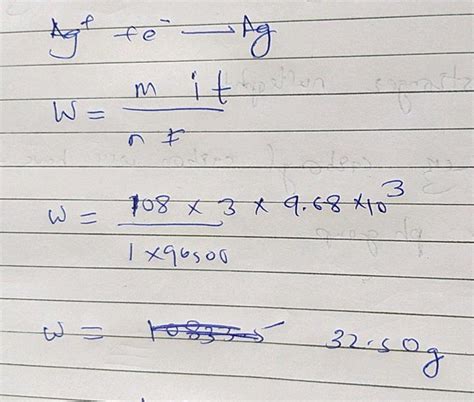 Ag⁺ + e⁻ → Ag
W = m i t / n F
W = 108 × 3 × 9.68 × 10³ / 1 × 96500
W = 32.50g